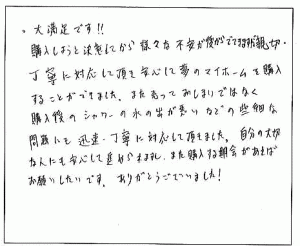 ○ 大満足です!!
購入しようと決意してから様々な不安が後からでてきますが親切・
丁寧に対応して頂き安心して夢のマイホームを購入
することができました。また売っておしまいではなく
購入後のシャワーの水の出が悪いなどの些細な
問題にも迅速・丁寧に対応して頂きました。自分の大切
な人にも安心して進められますし、また購入する機会があれば
お願いしたいです。ありがとうございました!